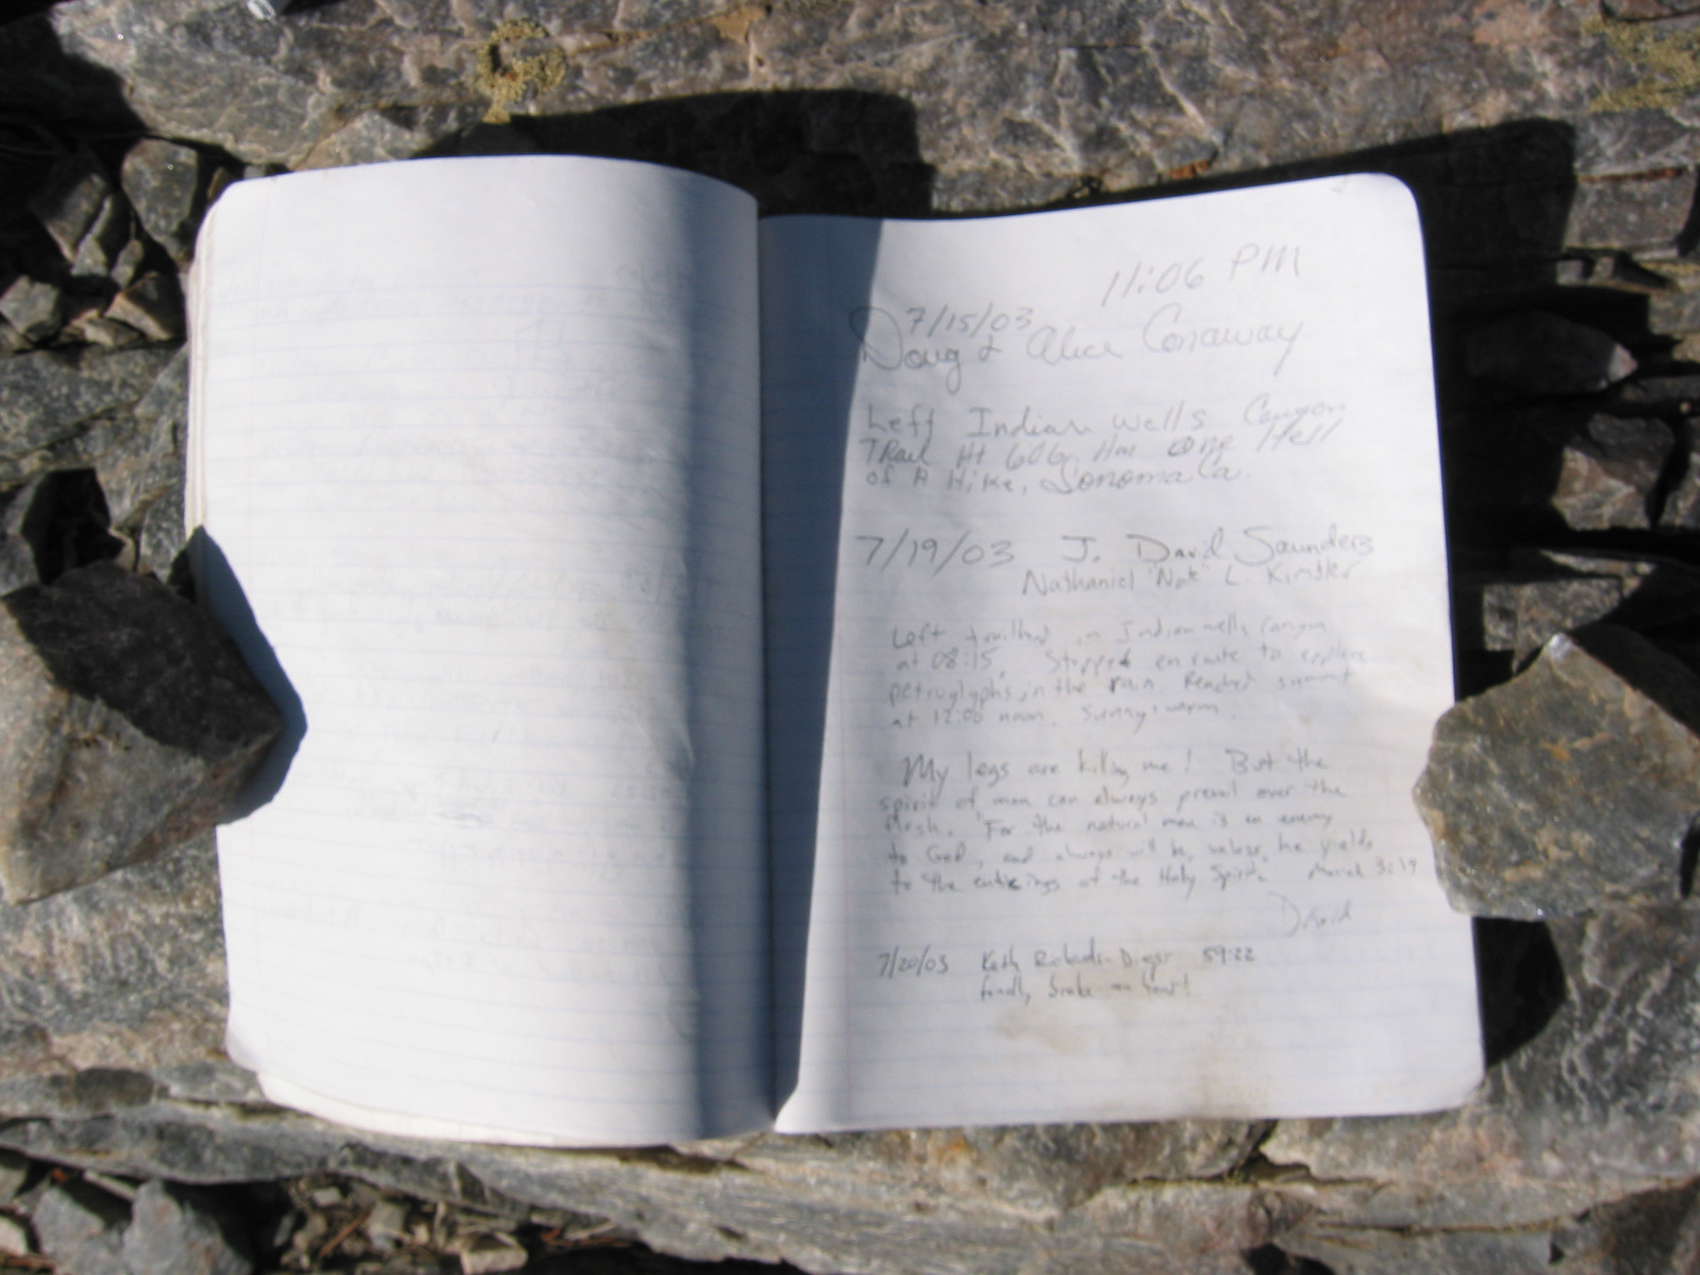 11:06 PM
7/15/03
Doug & Alice Conaway
Left Indian Wells Canyon
TRail At 606. Has One Hell
of A Hike, Sonoma Ca.
7/19/03 J. David Saunders
Nathaniel "Nate" L.
Left trailhead in Indian wells canyon
at 08:15. Stopped en route to explore
petroglyphs, in the rain. Reached summit
at 12:00 noon. Sunny & warm.
My legs are killing me! But the
spirit of man can always prevail over the
flesh. "For the natural man is an enemy
to God, and always will be, unless he yields
to the enticings of the Holy Spirit. 3:19
David
7/20/03 59:22
finally broke an hour!